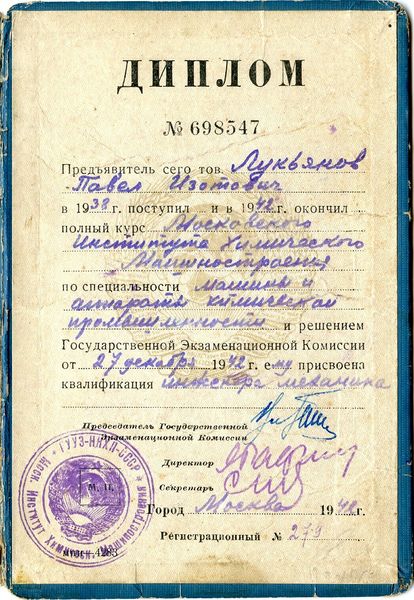 ДИПЛОМ
№ 698547
Предъявитель сего тов. Лукьянов
Павел Изотович
в 1938 г. поступил и в 1942 г. окончил
полный курс Московского
Института Химического
Машиностроения
по специальности машины и
аппараты химической
промышленности и решением
Государственной Экзаменационной Комиссии
от 27 декабря 1942 г. ему присвоена
квалификация инженера механика
Председатель Государственной
Экзаменационной Комиссии
Директор
Секретарь
Город Москва 1942 г.
Регистрационный № 279
ГУУЗ-НКХП-СССР
Моск. Институт Химич. Машиностроения
М. П.